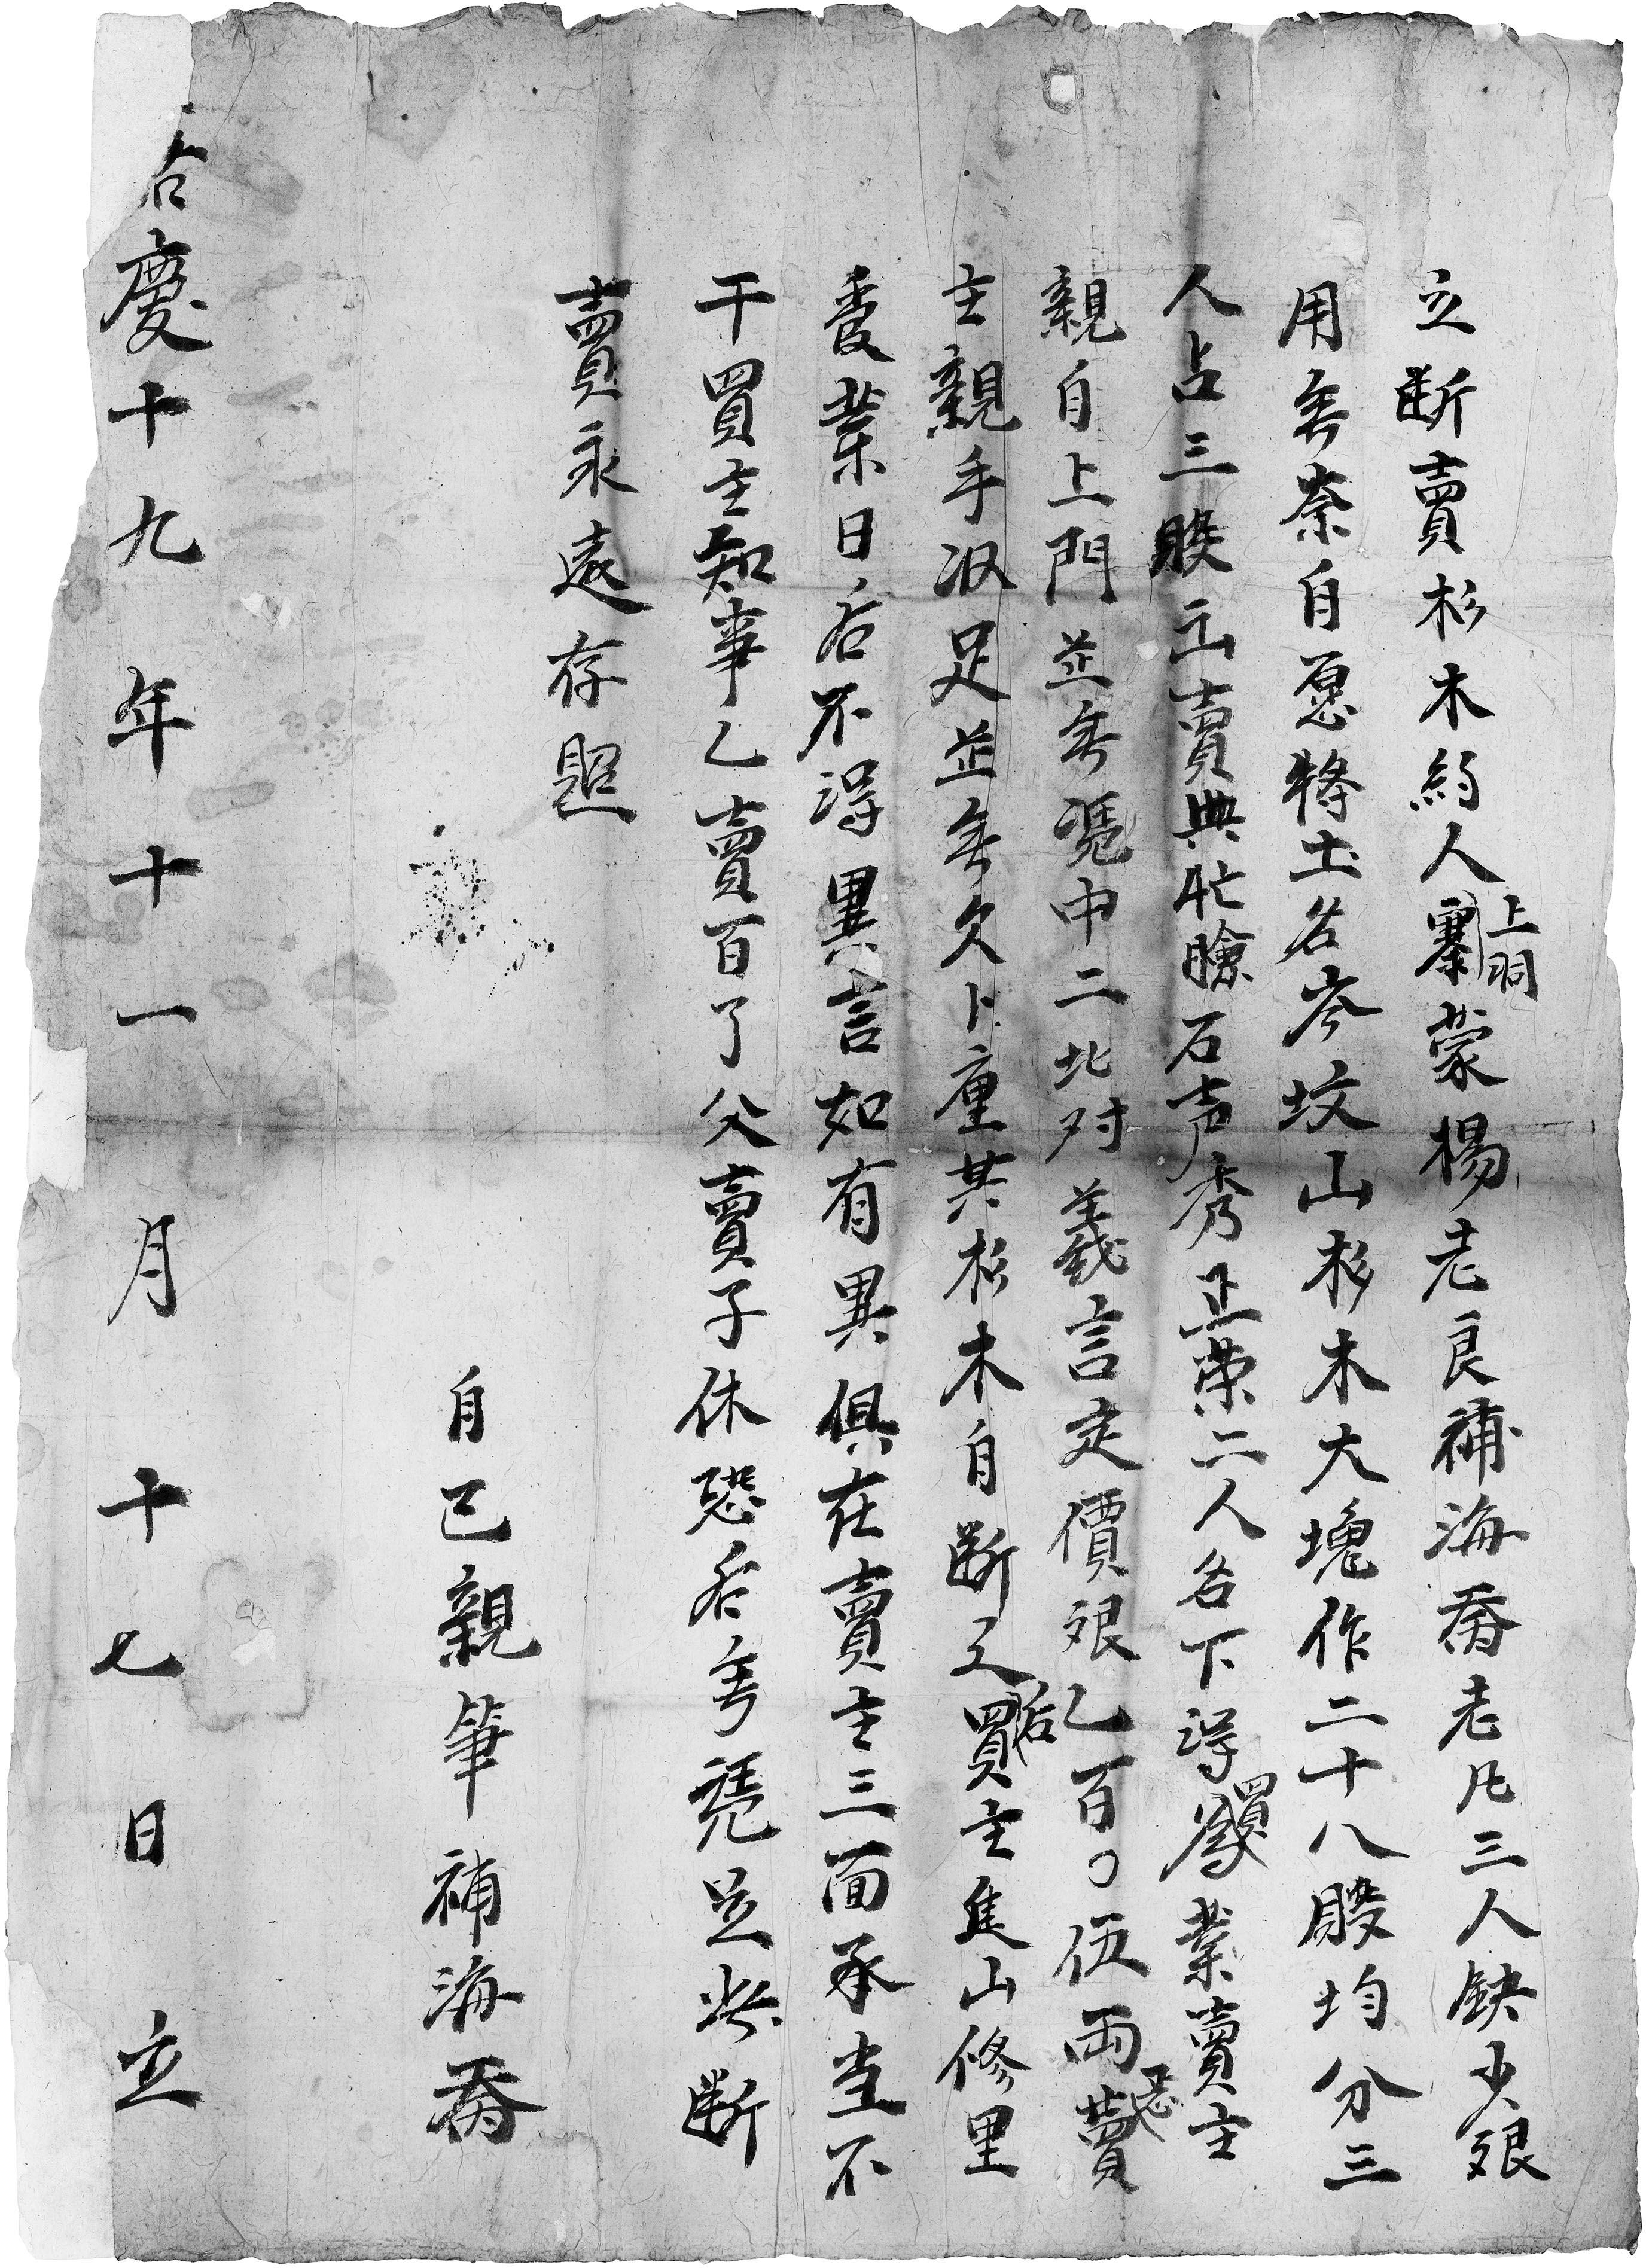 立断賣杉木約人上洞寨蒙楊老良補海喬老凡三人缺少艮
用無奈自愿將土名岑坟山杉木大塊作二十八股均分三
人占三股出賣與忙膾石声秀正荣二人名下得買為業賣主
親自上門並無凭中二比对義言定價艮乙百〇伍両整賣
主親手收足並無欠卜厘其杉木自断之后買主進山修里
受業日后不得異言如有異俱在賣主三面承当不
干買主知事乙賣百了父賣子休恐后無凭立此断
賣永遠存照
自己親筆補海喬
慶十九年十一月十七日立